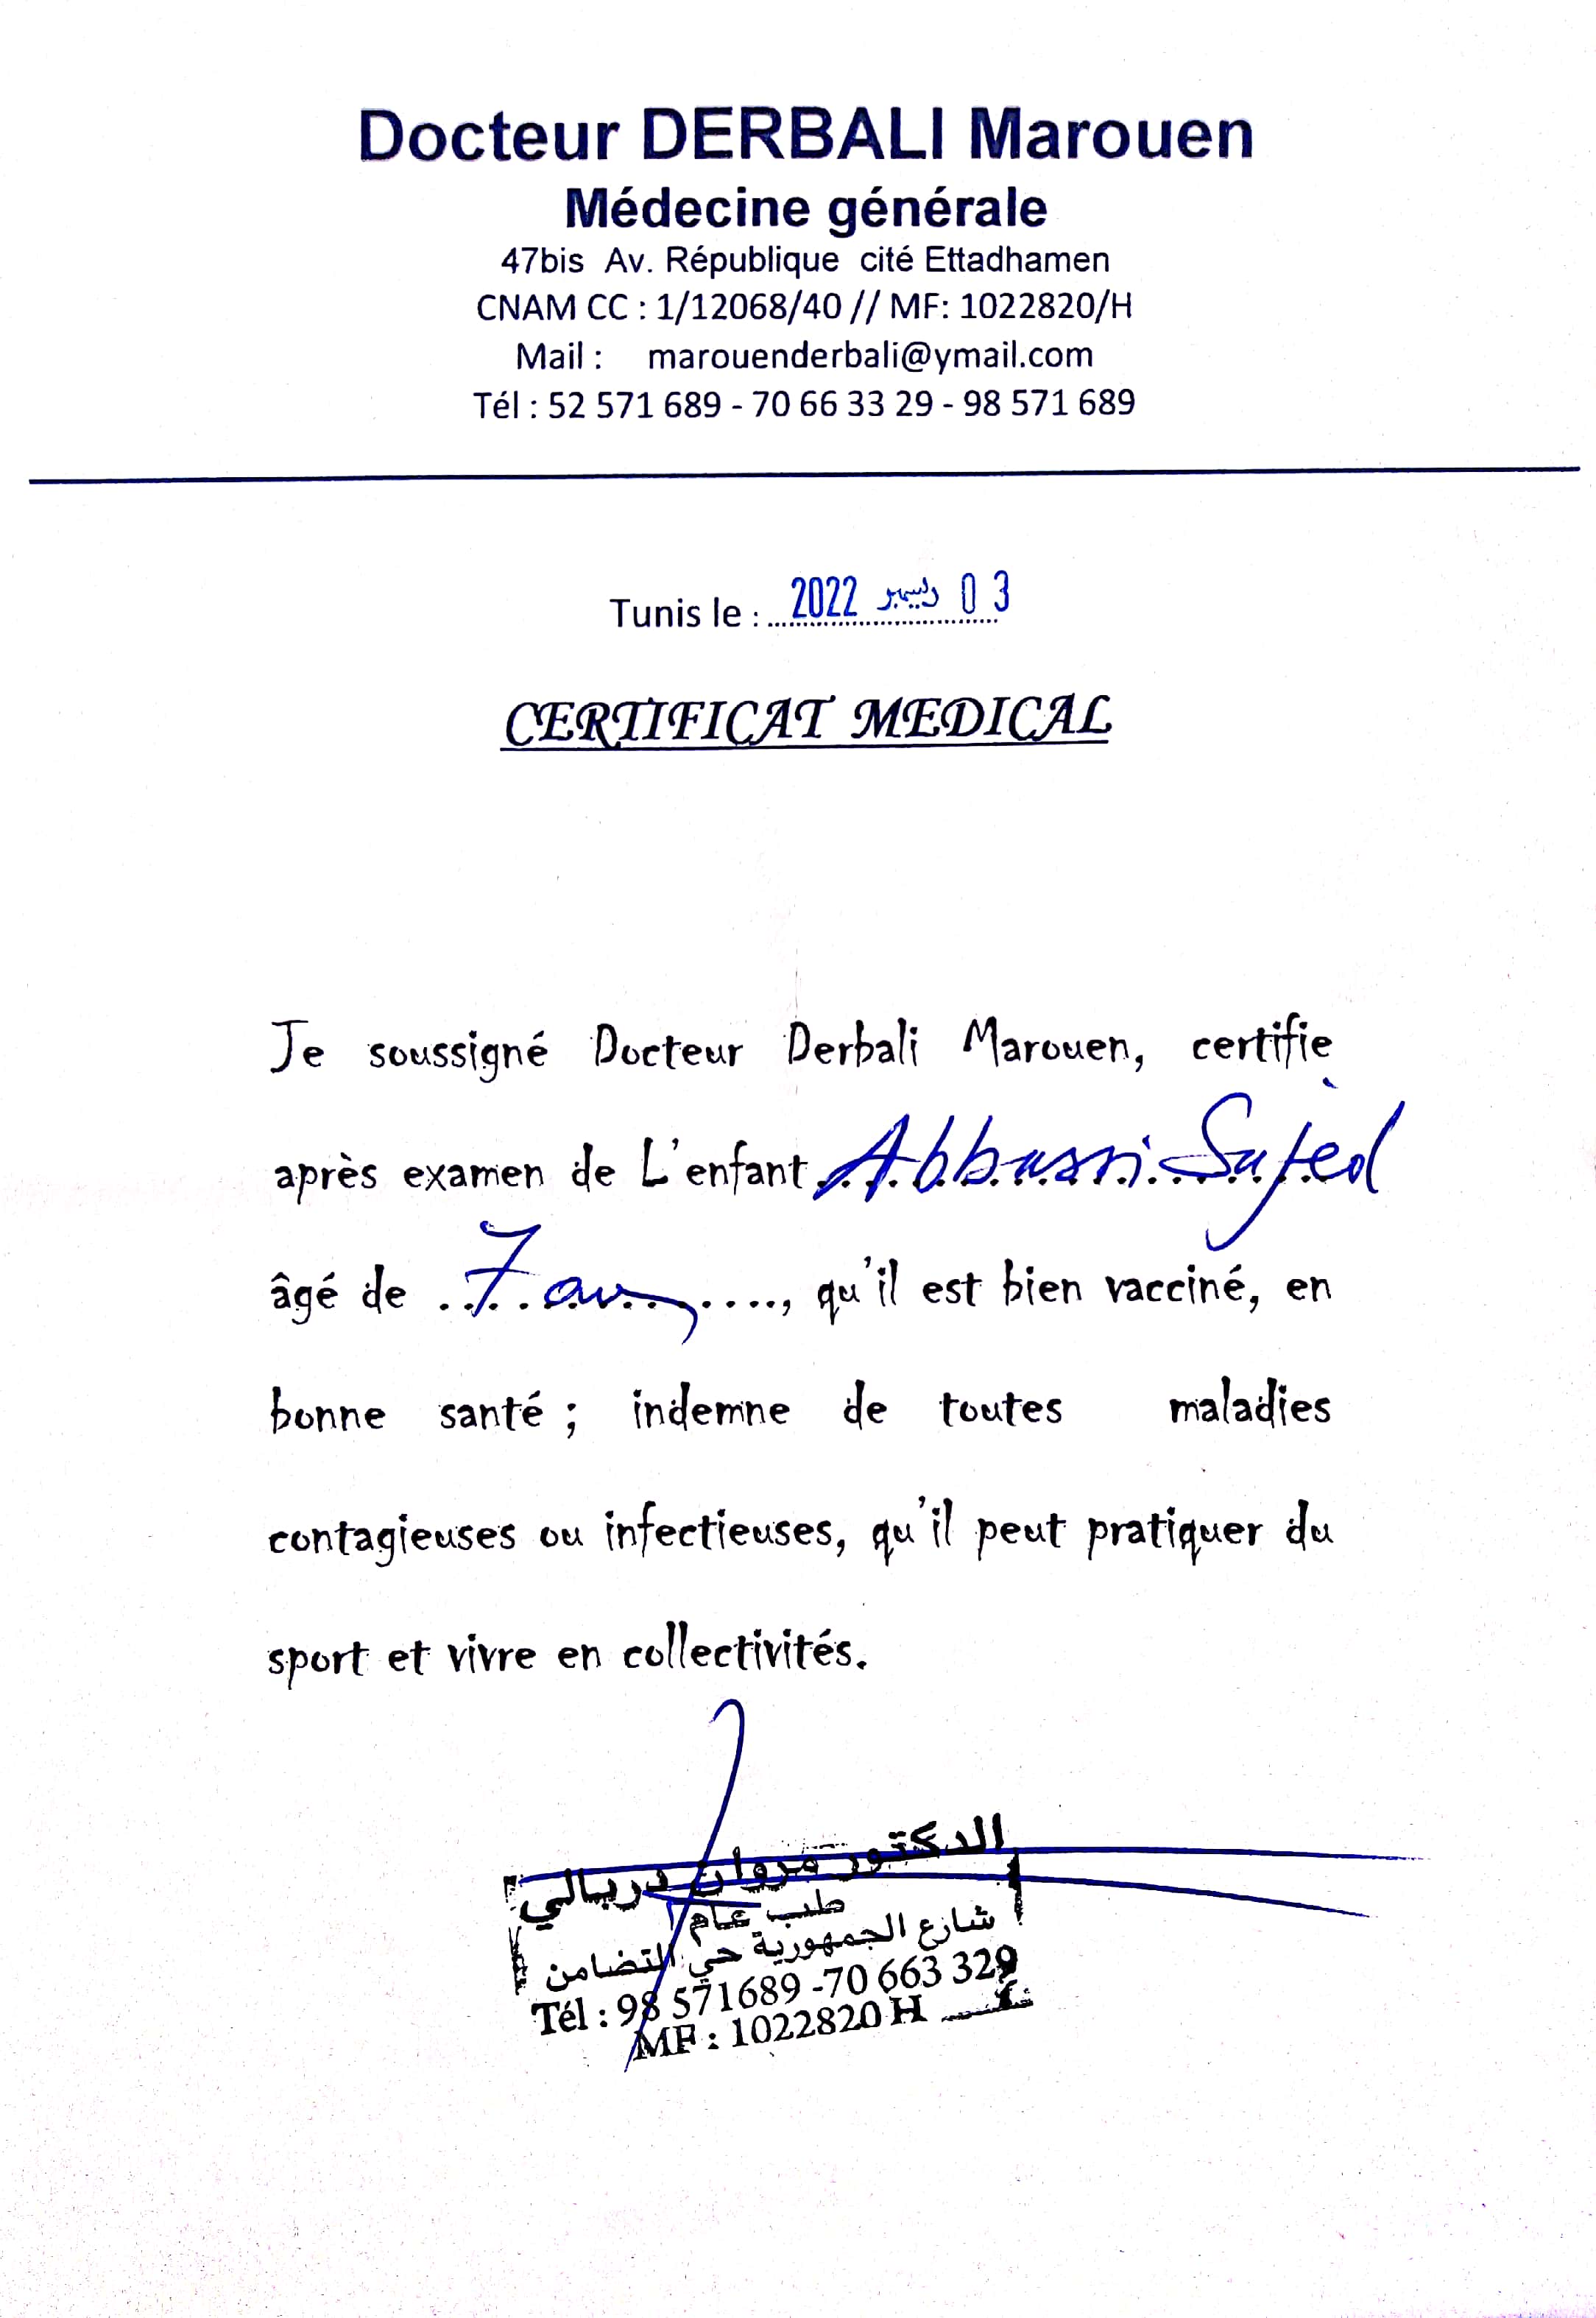 Docteur DERBALI Marouen
Médecine générale
47bis Av. République cité Ettadhamen
CNAM CC : 1/12068/40 // MF: 1022820/H
Mail : marouenderbali@ymail.com
Tél : 52 571 689 - 70 66 33 29 - 98 571 689
Tunis le : 2022 ديسمبر 03
CERTIFICAT MEDICAL
Je soussigné Docteur Derbali Marouen, certifie
après examen de L'enfant Abbassi Sajed
âgé de 7 ans, qu'il est bien vacciné, en
bonne santé ; indemne de toutes maladies
contagieuses ou infectieuses, qu'il peut pratiquer du
sport et vivre en collectivités.
الدكتور مروان دربالي
طب عام
شارع الجمهورية حي التضامن
Tél : 98 571689 -70 663 329
MF : 1022820 H